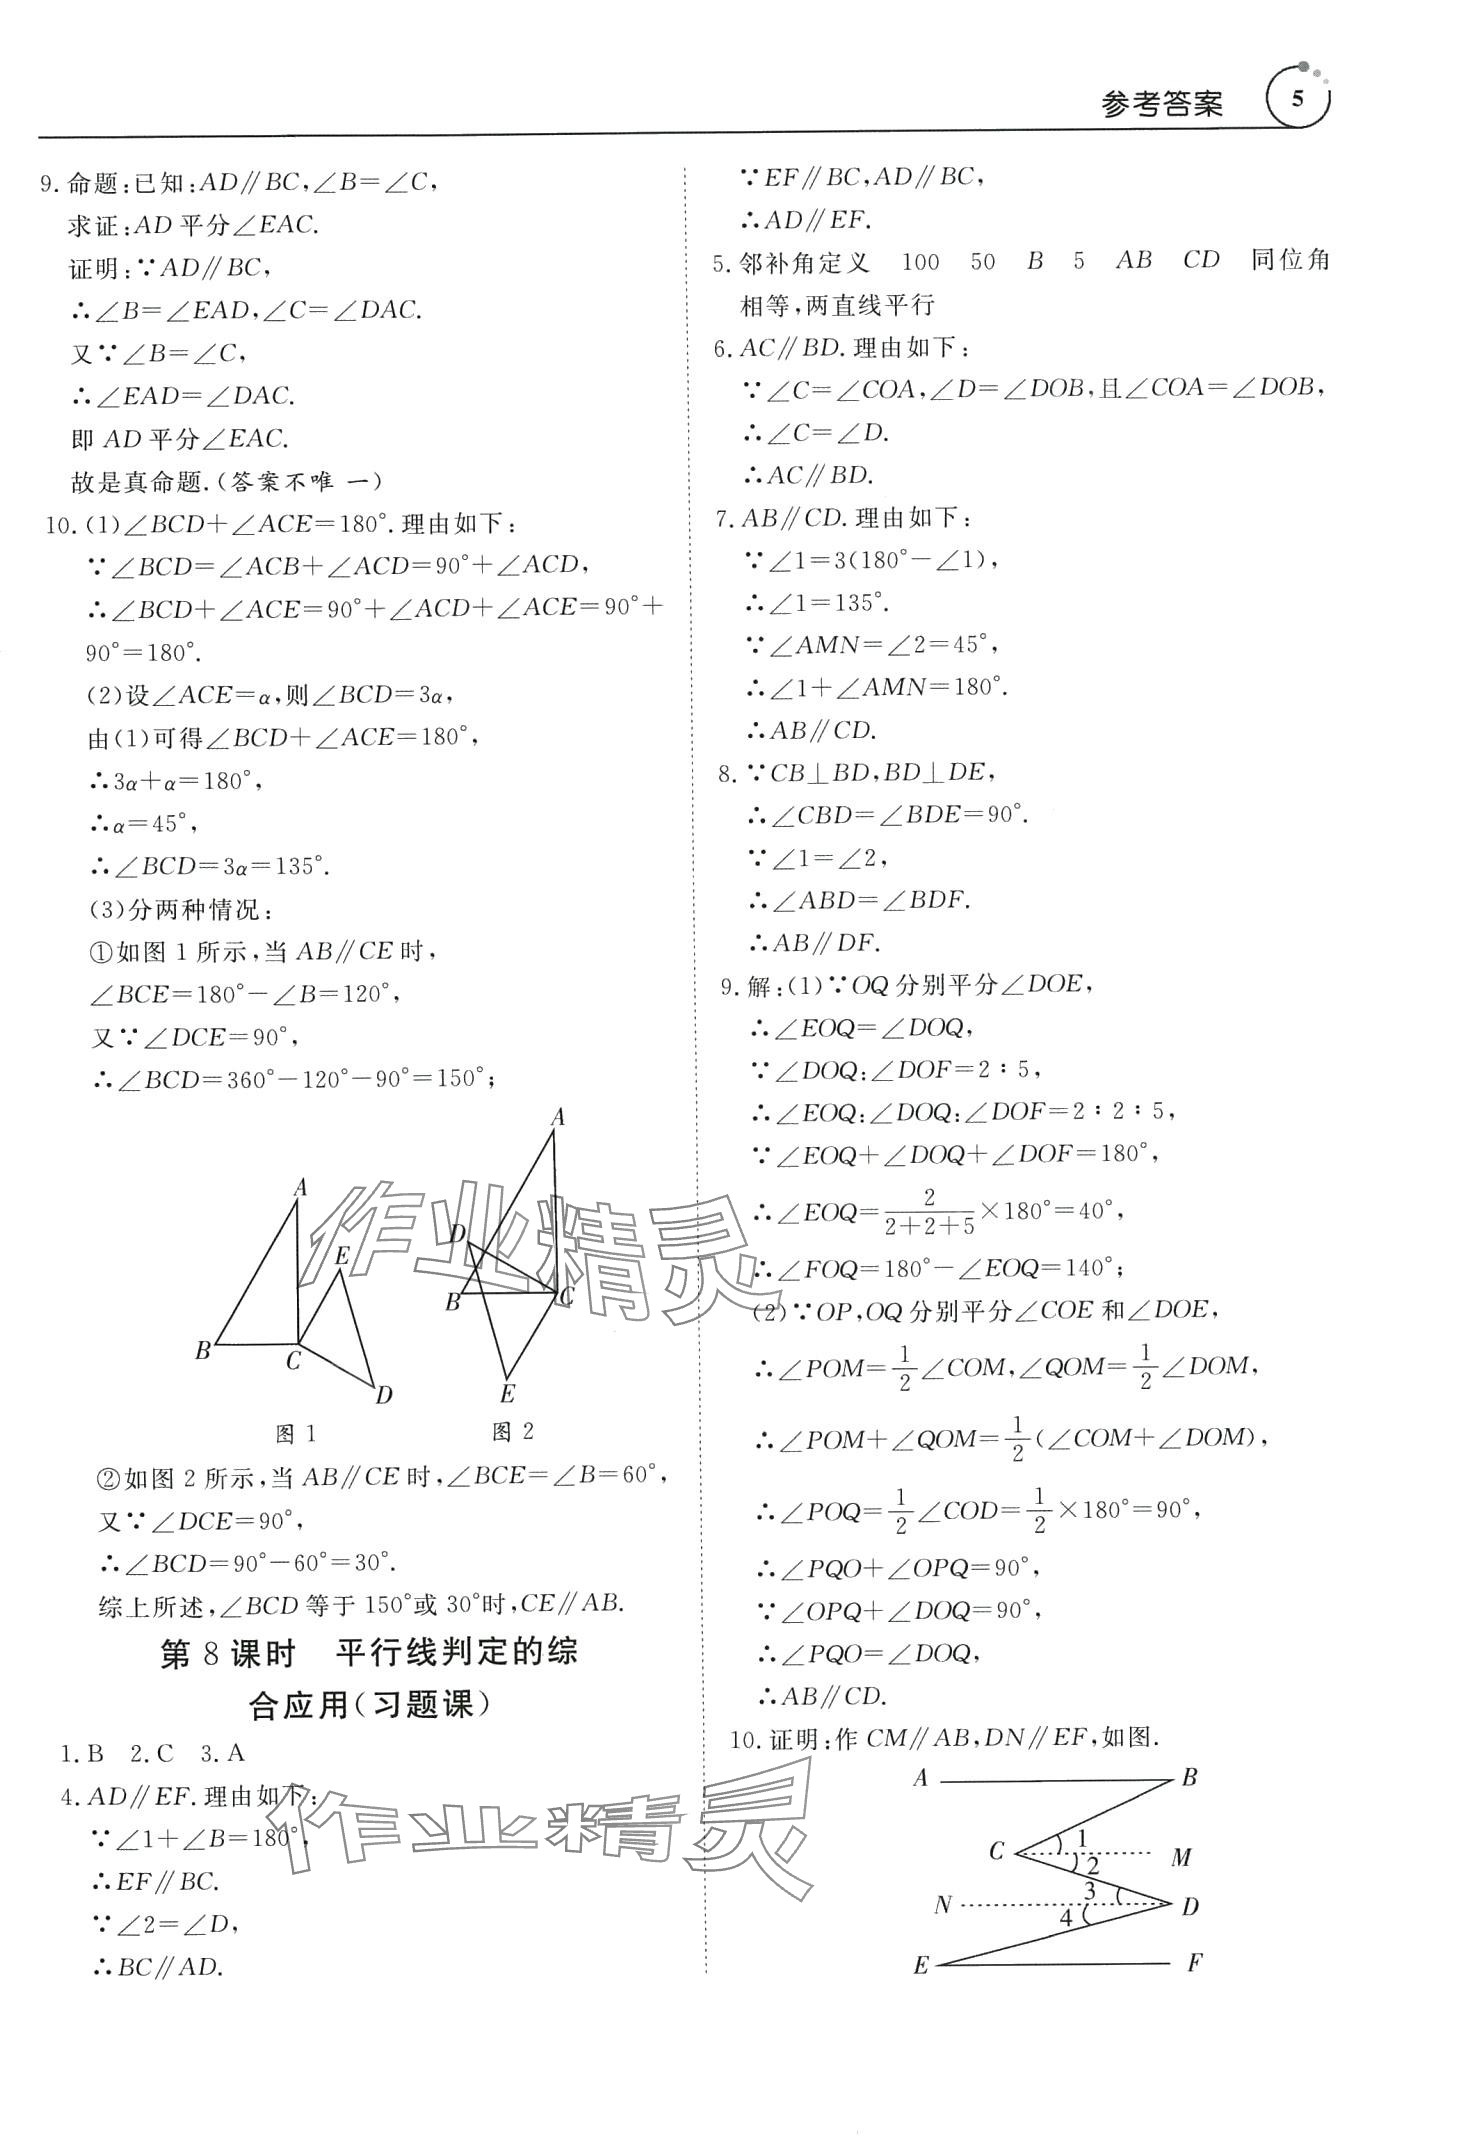 参考答案 5
9. 命题:已知:AD∥BC,∠B=∠C,
求证:AD 平分∠EAC.
证明:∵AD∥BC,
∴∠B=∠EAD,∠C=∠DAC.
又∵∠B=∠C,
∴∠EAD=∠DAC.
即 AD 平分∠EAC.
故是真命题.(答案不唯一)
10. (1)∠BCD+∠ACE=180°.理由如下:
∵∠BCD=∠ACB+∠ACD=90°+∠ACD,
∴∠BCD+∠ACE=90°+∠ACD+∠ACE=90°+
90°=180°.
(2)设∠ACE=α,则∠BCD=3α,
由(1)可得∠BCD+∠ACE=180°,
∴3α+α=180°,
∴α=45°,
∴∠BCD=3α=135°.
(3)分两种情况:
①如图 1 所示,当 AB∥CE 时,
∠BCE=180°-∠B=120°,
又∵∠DCE=90°,
∴∠BCD=360°-120°-90°=150°;
A
E
B
C
D
图 1
A
D
B
C
E
图 2
②如图 2 所示,当 AB∥CE 时,∠BCE=∠B=60°,
又∵∠DCE=90°,
∴∠BCD=90°-60°=30°.
综上所述,∠BCD 等于 150°或 30°时,CE∥AB.
第 8 课时 平行线判定的综
合应用(习题课)
1. B 2. C 3. A
4. AD∥EF.理由如下:
∵∠1+∠B=180°,
∴EF∥BC.
∵∠2=∠D,
∴BC∥AD.
∵EF∥BC,AD∥BC,
∴AD∥EF.
5. 邻补角定义 100 50 B 5 AB CD 同位角
相等,两直线平行
6. AC∥BD.理由如下:
∵∠C=∠COA,∠D=∠DOB,且∠COA=∠DOB,
∴∠C=∠D.
∴AC∥BD.
7. AB∥CD.理由如下:
∵∠1=3(180°-∠1),
∴∠1=135°.
∵∠AMN=∠2=45°,
∴∠1+∠AMN=180°.
∴AB∥CD.
8. ∵CB⊥BD,BD⊥DE,
∴∠CBD=∠BDE=90°.
∵∠1=∠2,
∴∠ABD=∠BDF.
∴AB∥DF.
9. 解:(1)∵OQ 分别平分∠DOE,
∴∠EOQ=∠DOQ,
∵∠DOQ:∠DOF=2:5,
∴∠EOQ:∠DOQ:∠DOF=2:2:5,
∵∠EOQ+∠DOQ+∠DOF=180°,
∴∠EOQ=2/(2+2+5)×180°=40°,
∴∠FOQ=180°-∠EOQ=140°;
(2)∵OP,OQ 分别平分∠COE 和∠DOE,
∴∠POM=1/2∠COM,∠QOM=1/2∠DOM,
∴∠POM+∠QOM=1/2(∠COM+∠DOM),
∴∠POQ=1/2∠COD=1/2×180°=90°,
∴∠PQO+∠OPQ=90°,
∵∠OPQ+∠DOQ=90°,
∴∠PQO=∠DOQ,
∴AB∥CD.
10. 证明:作 CM∥AB,DN∥EF,如图.
A B
C 1 2 M
N 3 4 D
E F
作业精灵
作业精灵